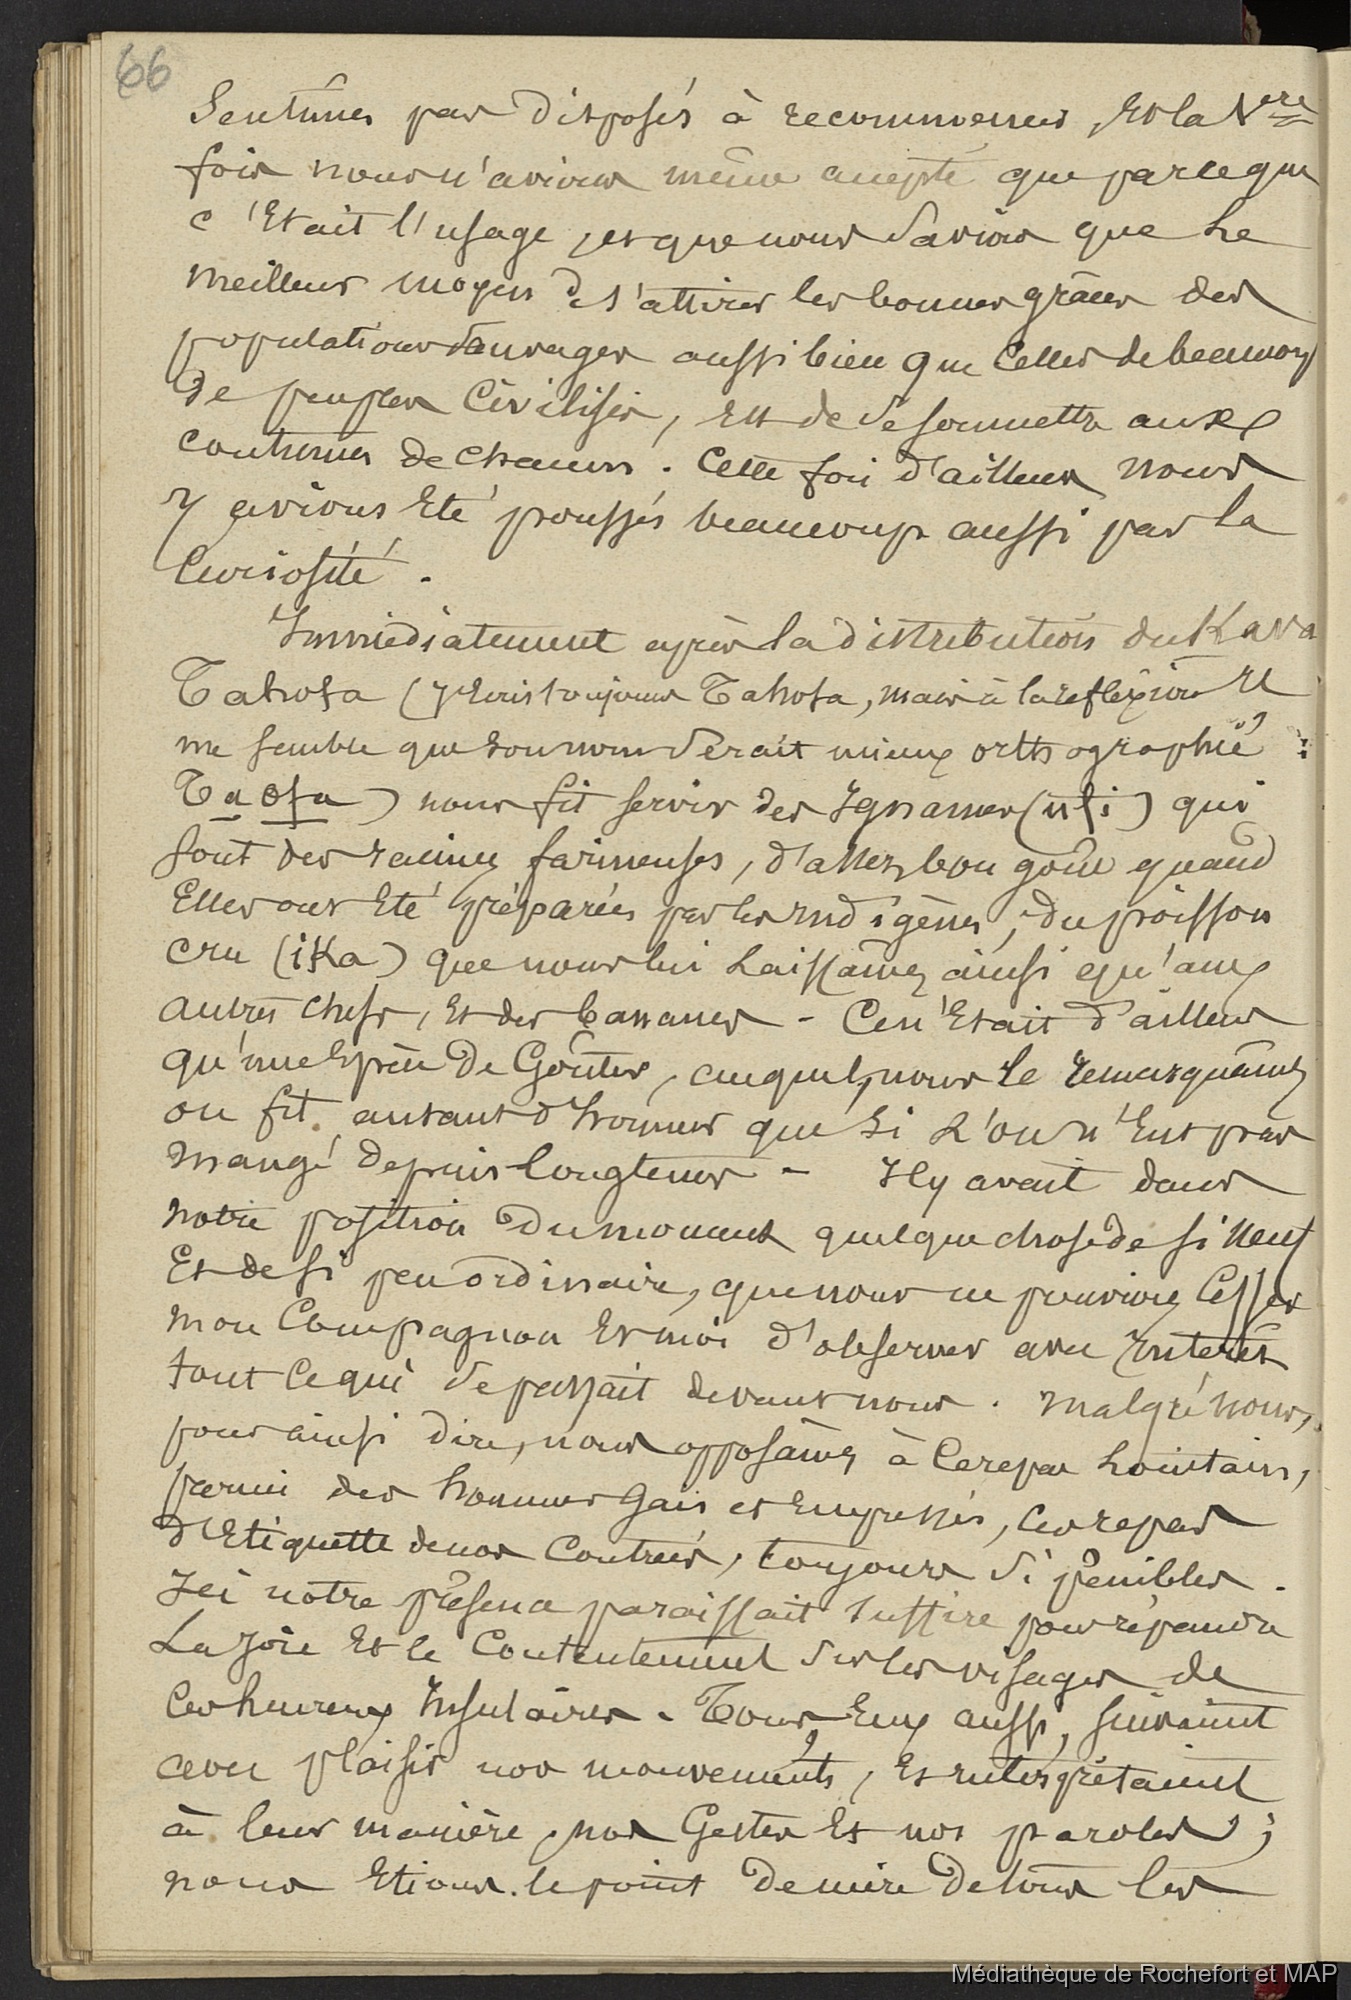 66
sentîmes pas disposés à recommencer, et la 1ère
fois nous n'avions même accepté que parceque
c'était l'usage, et que nous savions que le
meilleur moyen de s'attirer les bonnes grâces des
populations sauvages aussi bien que celles de beaucoup
de peuples civilisés, est de se soumettre aux
coutumes de chacun. Cette fois d'ailleurs nous
y avions été poussés beaucoup aussi par la
curiosité.
Immédiatement après la distribution du Kava
Tahofa (j'écris toujours Tahofa, mais à la reflexion il
me semble que son nom serait mieux orthographié :
Taofa) nous fit servir des Ignames (ufi) qui
sont des racines farineuses, d'assez bon goût quand
elles ont été préparées par les indigènes, du poisson
cru (ika) que nous lui laissâmes ainsi qu'aux
autres chefs, et des bananes - Ce n'était d'ailleurs
qu'une espèce de Goûter, auquel, nous le remarquâmes
on fit autant d'honneur que si l'on n'eut pas
mangé depuis longtems - Il y avait dans
notre position du moment quelque chose de si neuf
et de si peu ordinaire, que nous ne pouvions cesser
mon Compagnon et moi d'observer avec intérêt
tout ce qui se passait devant nous. Malgré nous,
pour ainsi dire, nous opposâmes à ce repas lointain,
parmi des hommes gais et empressés, ces repas
d'Etiquette de nos contrées, toujours si pénibles.
Ici notre présence paraissait suffire pour répandre
la joie et le contentement sur les visages de
ces heureux Insulaires. Tous, eux aussi, suivaient
avec plaisir nos mouvements, et interprétaient
à leur manière, nos Gestes et nos paroles ;
nous étions le point de mire de tous les
Médiathèque de Rochefort et MAP